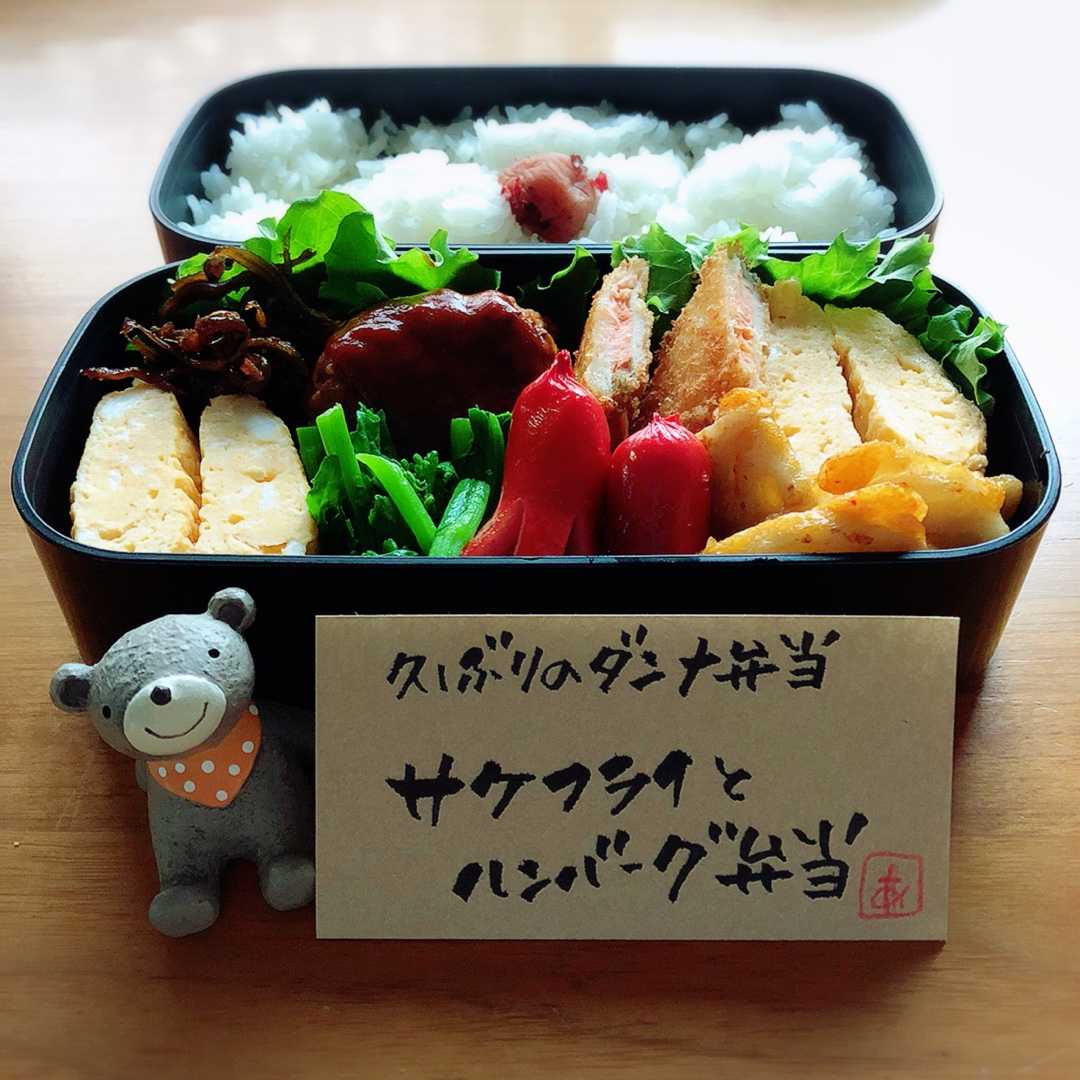 久しぶりのダンナ弁当
サケフライと
ハンバーグ弁当
あ